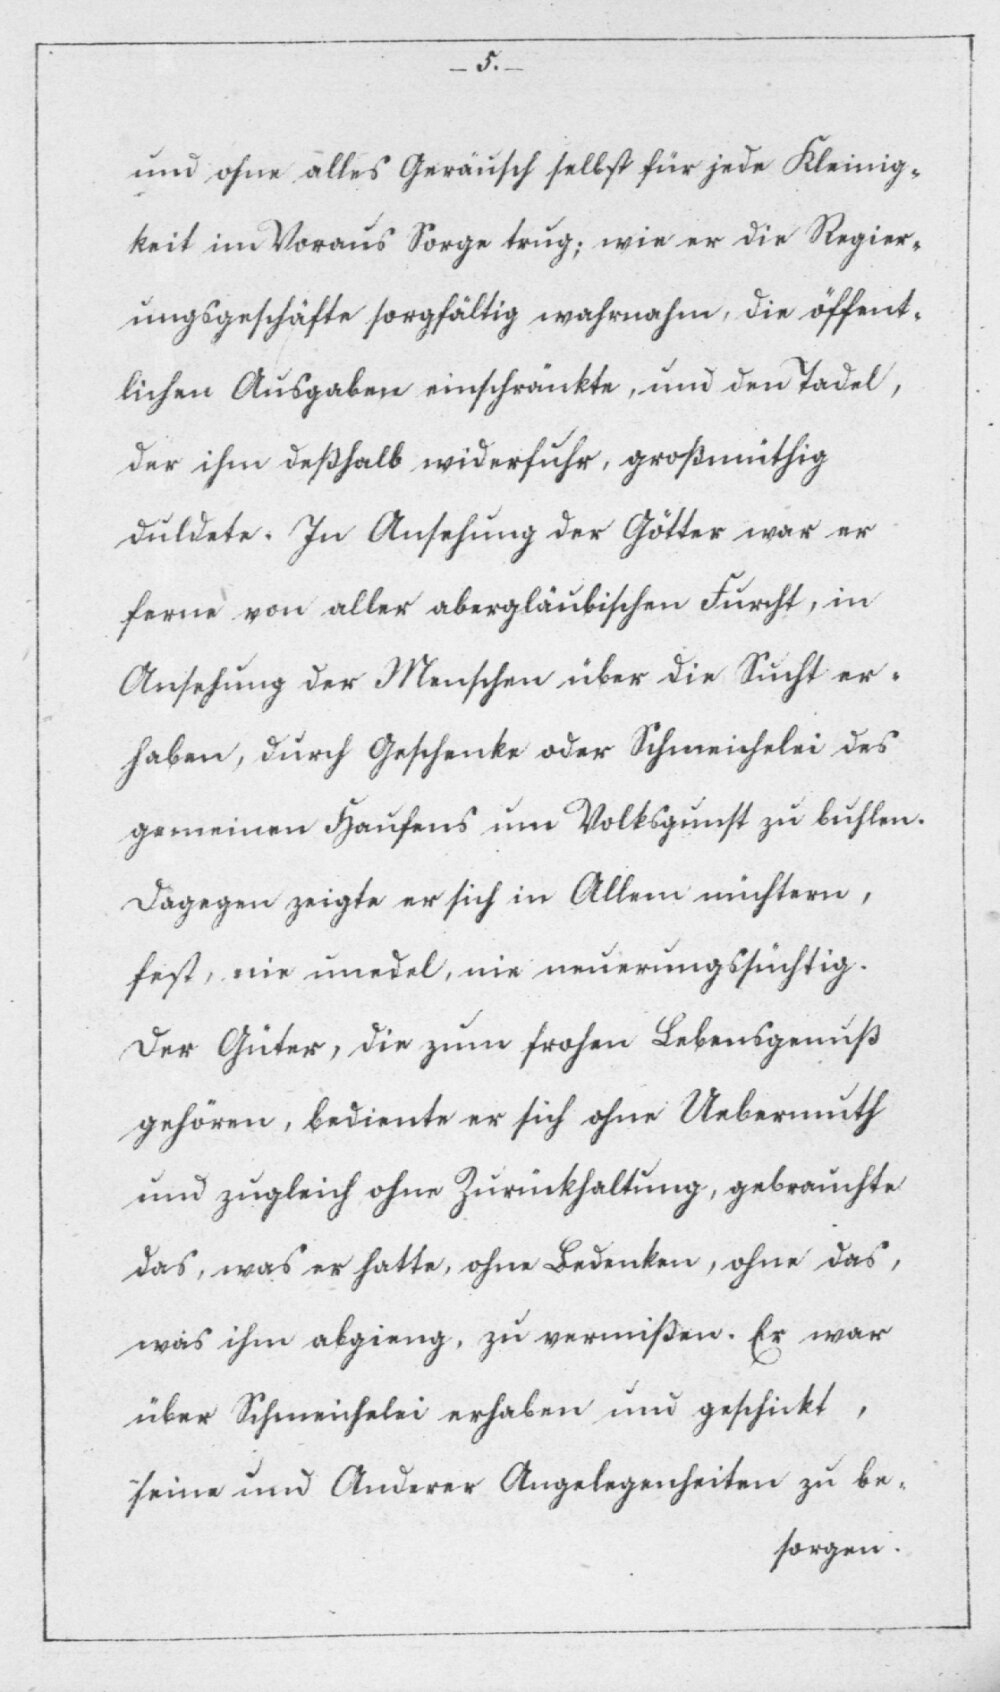 – 5. –
und ohne alles Geräusch selbst für jede Kleinig-
keit im Voraus Sorge trug; wie er die Regier-
ungsgeschäfte sorgfältig wahrnahm, die öffent-
lichen Ausgaben einschränkte, und den Tadel,
der ihm deßhalb widerfuhr, großmüthig
duldete. In Ansehung der Götter war er
ferne von aller abergläubischen Furcht, in
Ansehung der Menschen über die Sucht er-
haben, durch Geschenke oder Schmeichelei des
gemeinen Haufens um Volksgunst zu buhlen.
Dagegen zeigte er sich in Allem nüchtern,
fest, nie unedel, nie neuerungssüchtig.
Der Güter, die zum frohen Lebensgenuß
gehören, bediente er sich ohne Uebermuth
und zugleich ohne Zurückhaltung, gebrauchte
das, was er hatte, ohne Bedenken, ohne das,
was ihm abgieng, zu vermißen. Er war
über Schmeichelei erhaben und geschickt,
seine und Anderer Angelegenheiten zu be-
sorgen.